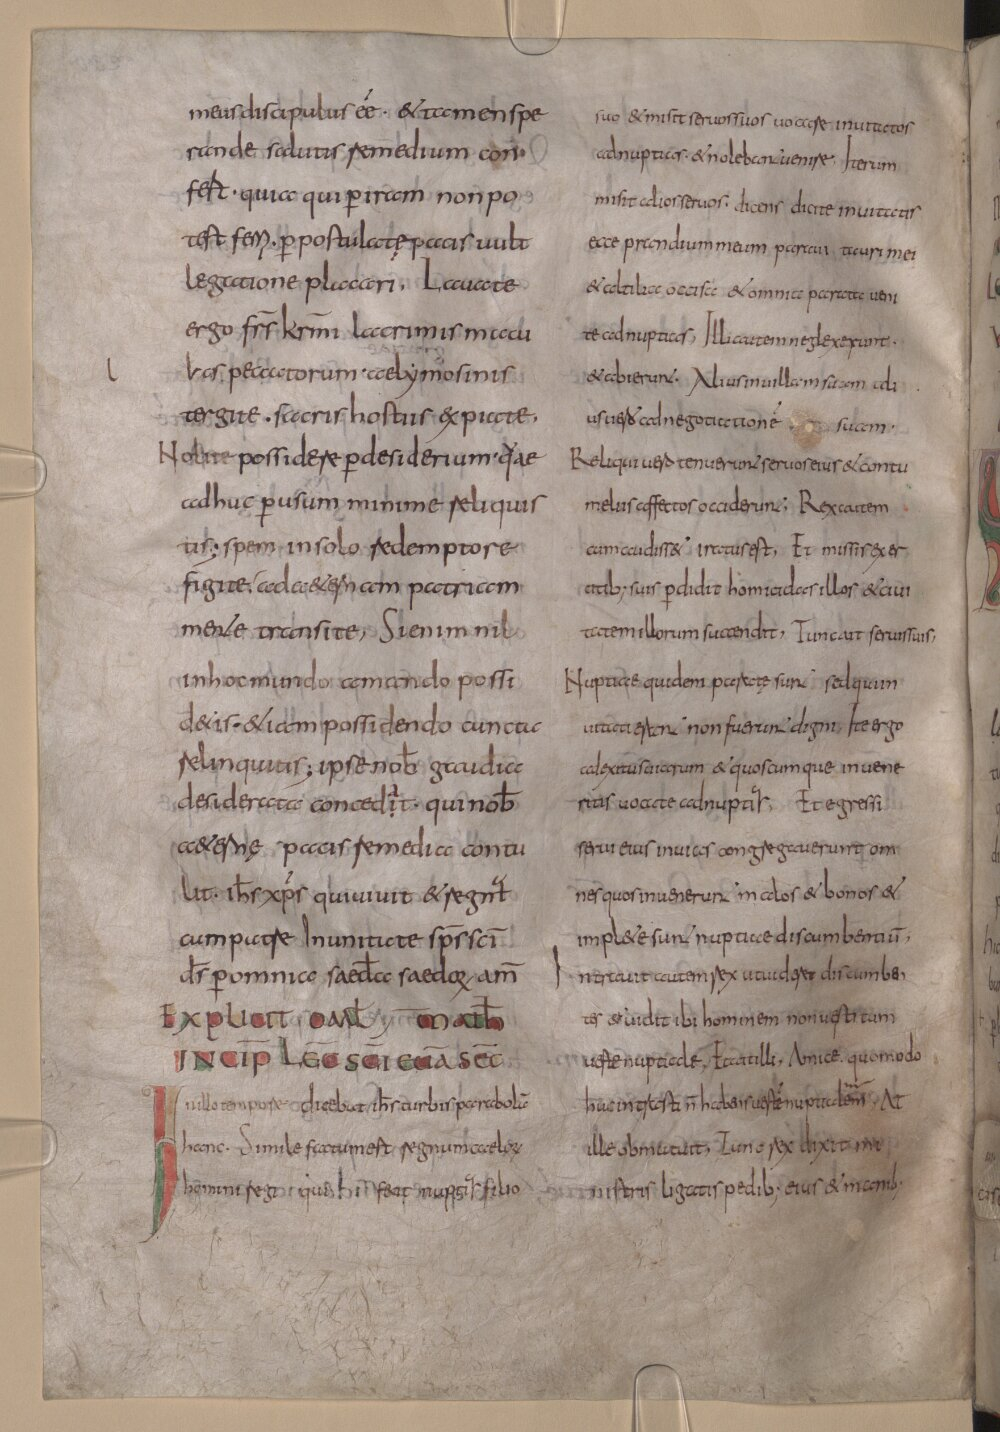 meus discipulus eē· & tamen spe
rande salutis remedium con
fert· quia qui p iram non po
test ferri· p postulatę pacis uult
legatione placari, Lauate
ergo frs krmi lacrimis macu
las peccatorum· aelymosinis
tergite· sacris hostiis expiate,
Nolite possidere p desiderium· quae
adhuc p usum minime reliquis
tis; spem in solo redemptore
figite, ad aeternam patriam
mente transite, Si enim nil
in hoc mundo amando possi
detis· & iam possidendo cuncta
relinquitis; ipse nob gaudia
desiderata concedat· qui nob
aeternę pacis remedia contu
lit· ihs xps qui uiuit & regnat
cum patre In unitate sps sci
ds p omnia saecla saeclorum am
EXPLICIT OML
INCIP LEC SCI EUA SEC
In illo tempore dicebat ihs turbis parabolā
hanc· Simile factum est regnum caelorum
homini regi qui fecit nuptias filio
suo & misit seruos suos uocare inuitatos
ad nuptias· & nolebant uenire, Iterum
misit alios seruos· dicens dicite inuitatis
ecce prandium meum paraui tauri mei
& altilia occisa & omnia parata ueni
te ad nuptias, Illi autem neglexerunt·
& abierunt· Alius in uillam suam ali
us uero ad negotiationē suam·
Reliqui uero tenuerunt seruos eius & contu
meliis affectos occiderunt; Rex autem
cum audisset iratus est, Et missis exer
citib; suis pdidit homicidas illos & ciui
tatem illorum succendit, Tunc ait seruis suis,
Nuptiae quidem paratę sunt sed qui in
uitati erant non fuerunt digni, Ite ergo
ad exitus uiarum & quoscumque inuene
ritis uocate ad nuptias, Et egressi
serui eius in uias congregauerunt om
nes quos inuenerunt malos & bonos &
impletę sunt nuptiae discumbentiū,
Intrauit autem rex ut uideret discumben
tes & uidit ibi hominem non uestitum
ueste nuptiale, Et ait illi, Amice quomodo
huc intrasti n habens uestē nuptialem, At
ille obmutuit, Tunc rex dixit mi
nistris ligatis pedib; eius & manib·